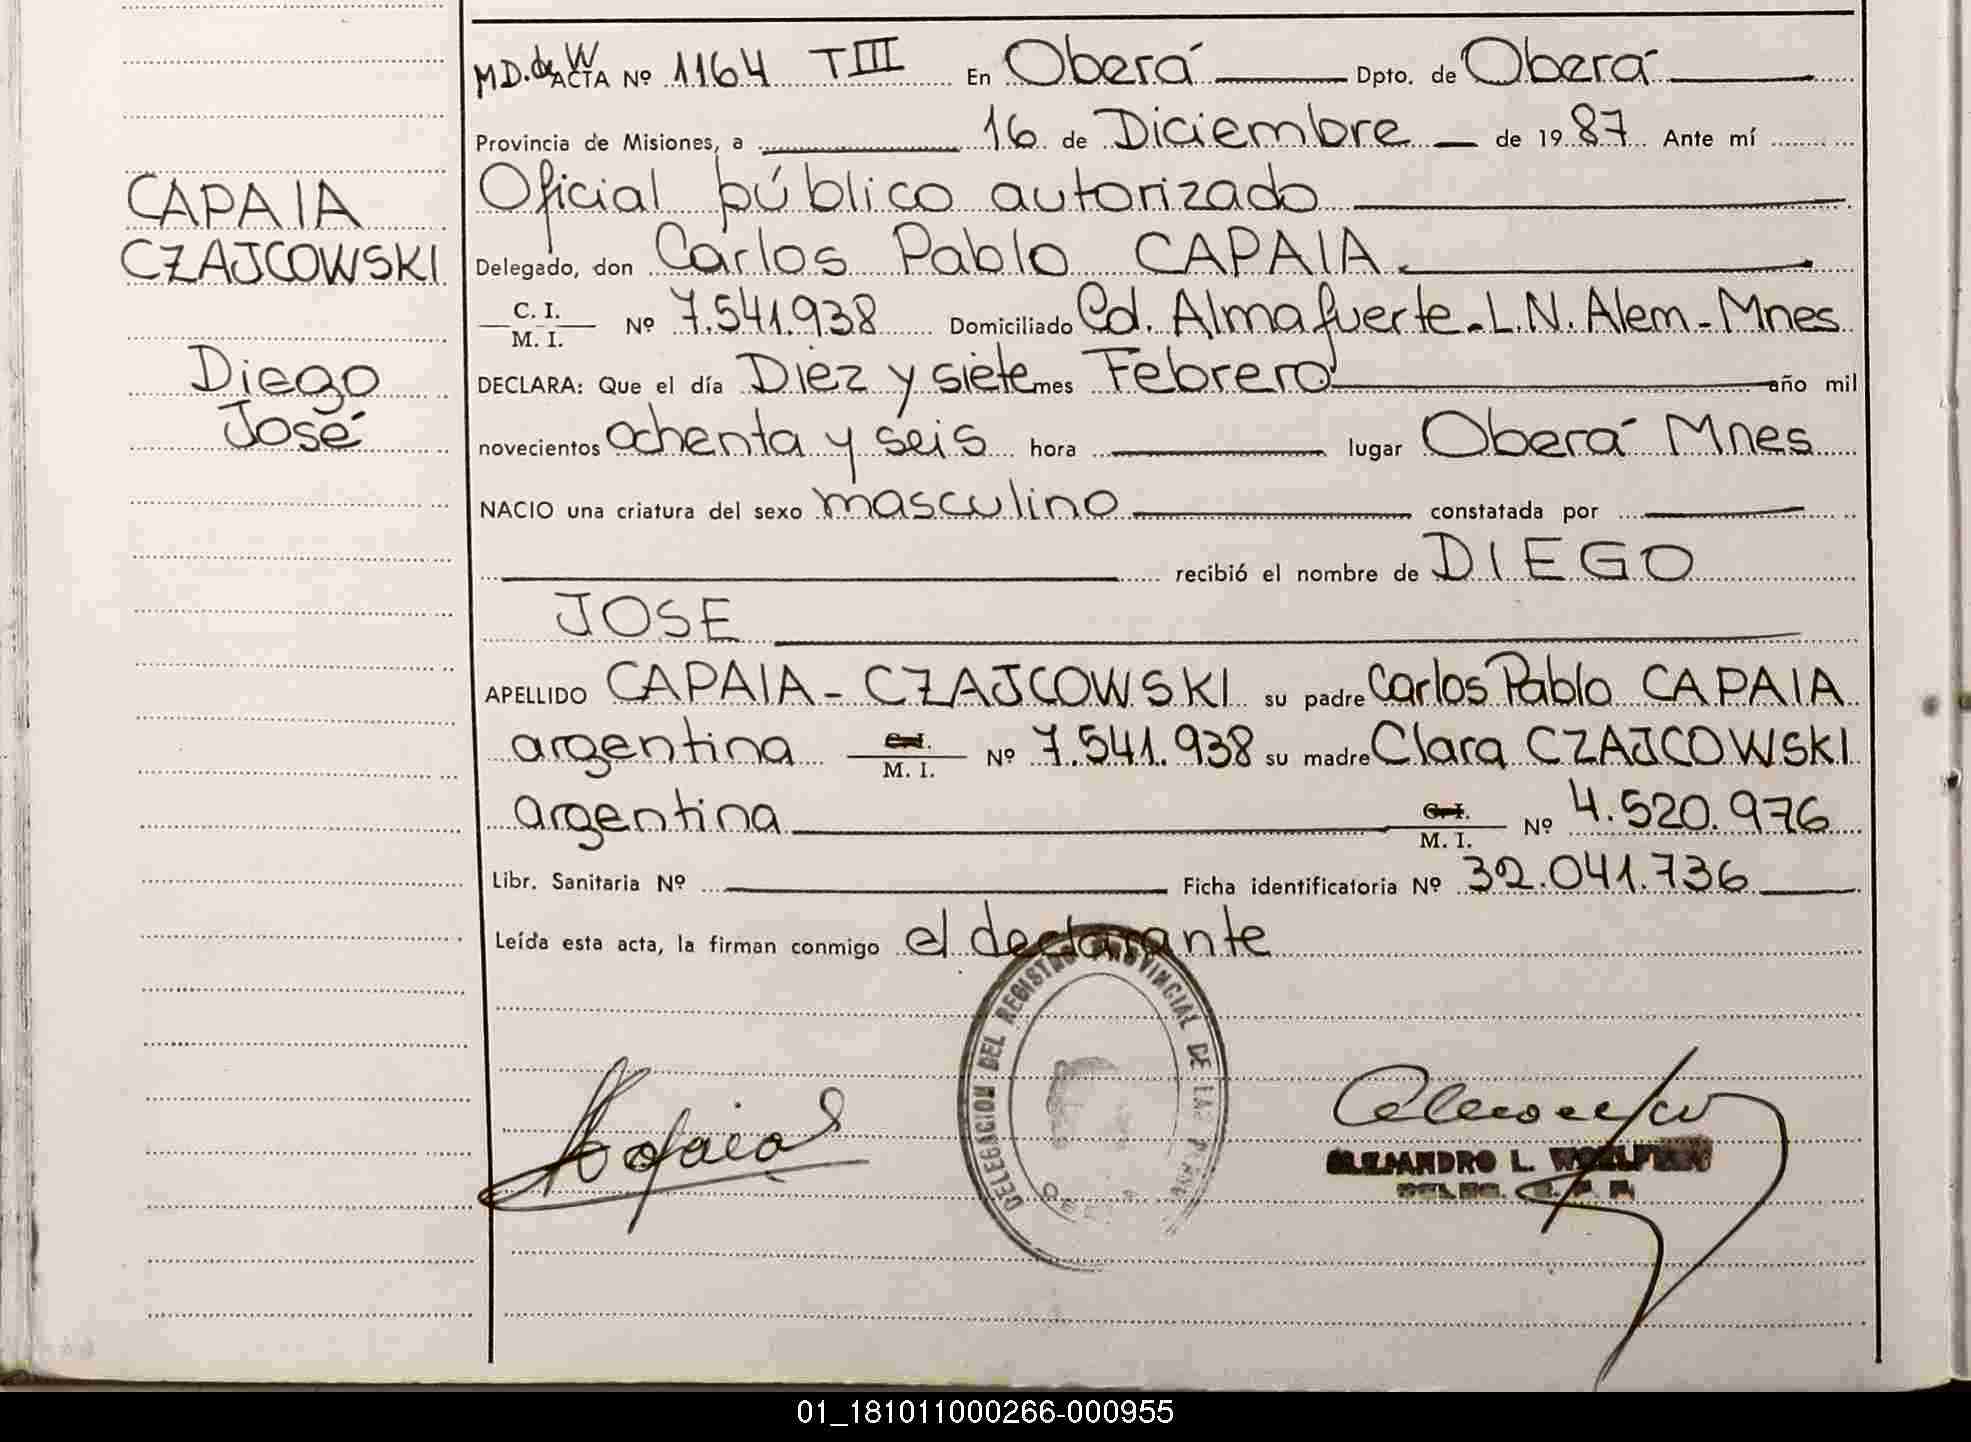 MD. de W ACTA Nº 1164 TIII En Oberá Dpto. de Oberá
Provincia de Misiones, a 16 de Diciembre de 1987 Ante mí
Oficial público autorizado
Delegado, don Carlos Pablo CAPAIA
C. I.
M. I.
Nº 7.541.938 Domiciliado Cd. Almafuerte-L.N. Alem-Mnes
DECLARA: Que el día Diez y siete mes Febrero año mil
novecientos ochenta y seis hora lugar Oberá Mnes
NACIO una criatura del sexo masculino constatada por
recibió el nombre de DIEGO
JOSE
APELLIDO CAPAIA-CZAJCOWSKI su padre Carlos Pablo CAPAIA
argentina C.I. M. I. Nº 7.541.938 su madre Clara CZAJCOWSKI
argentina C.I. M. I. Nº 4.520.976
Libr. Sanitaria Nº Ficha identificatoria Nº 32.041.736
Leída esta acta, la firman conmigo el declarante
CAPAIA
CZAJCOWSKI
Diego
José
DELEGACION DEL REGISTRO PROVINCIAL DE LAS
ALEJANDRO L.
01_181011000266-000955